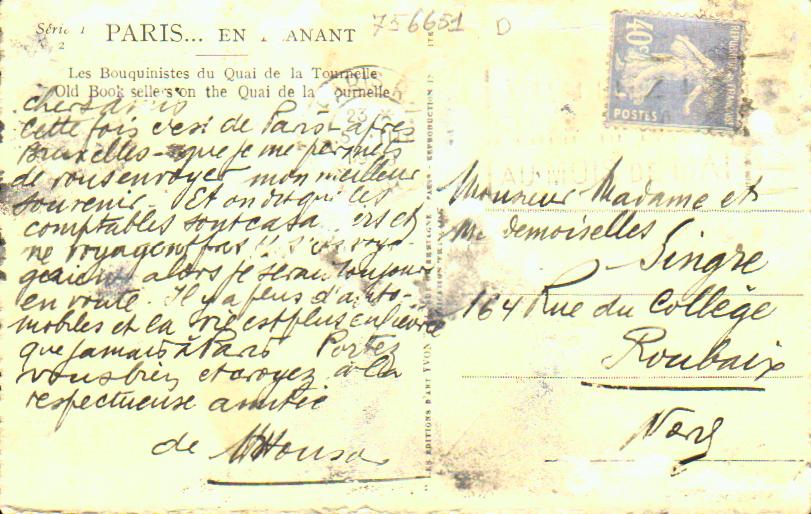 Série 1
2
PARIS... EN ANANT
756651
D
Les Bouquinistes du Quai de la Tournelle
Old Book sellers on the Quai de la Tournelle
chers amis
Cette fois c'est de Paris - après
Bruxelles - que je me permets
de vous envoyer mon meilleur
souvenir. Et on dit que les
comptables sont casa ers et
ne voyagent pas !! S'ils voya-
geaient alors je serai toujours
en route. Il y a plus d'auto-
mobiles et la vie est plus enfiévrée
que jamais à Paris Portez
vous bien et croyez à la
respectueuse amitié
de
LES EDITIONS D'ART YVON
REPRODUCTION
40c
POSTES
AU MOIS DE MAI
Monsieur Madame et
M demoiselles
Singre
164 Rue du Collège
Roubaix
Nord